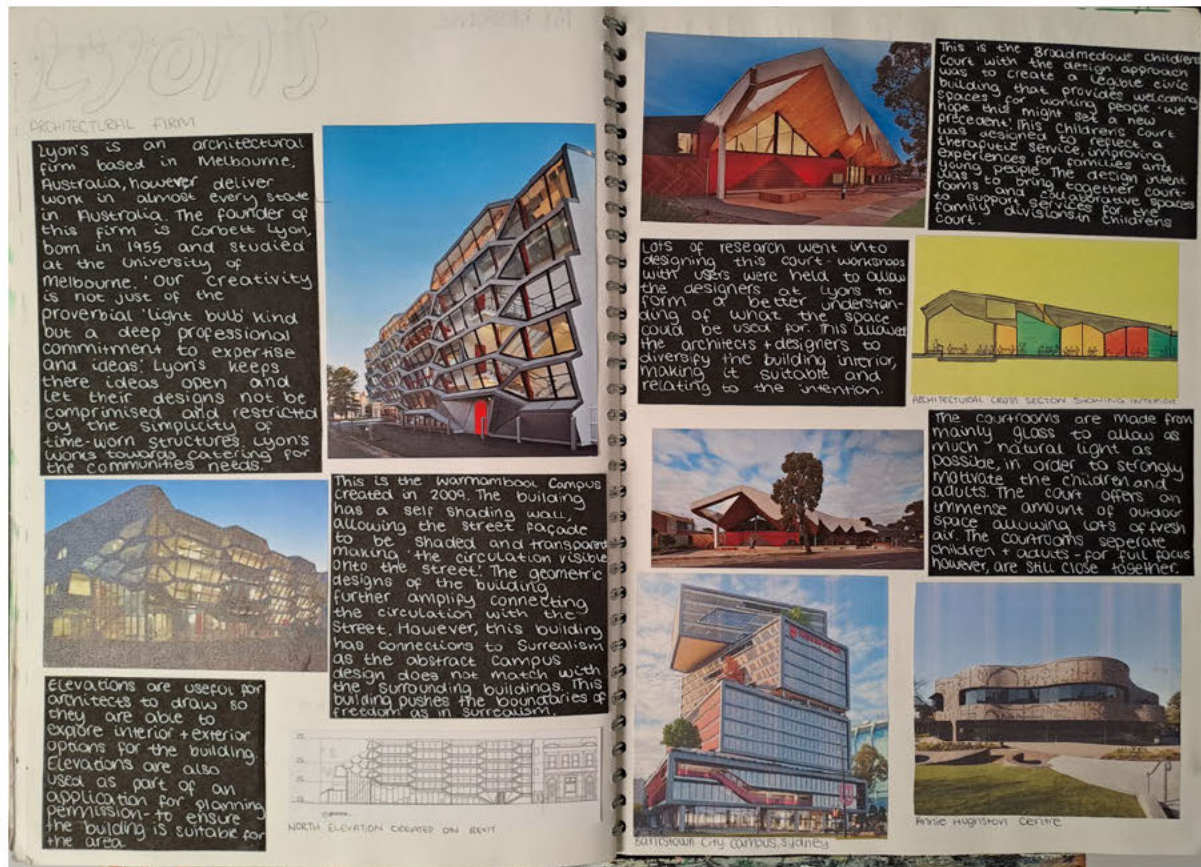 Lyons
ARCHITECTURAL FIRM
Lyon's is an architectural
firm based in Melbourne,
Australia, however deliver
work in almost every state
in Australia. The founder of
this firm is Corbett Lyon,
born in 1955 and studied
at the University of
Melbourne. 'Our creativity
is not just of the
proverbial 'light bulb' kind
but a deep professional
commitment to expertise
and ideas.' Lyon's keeps
there ideas open and
let their designs not be
comprimised and restricted
by the simplicity of
time-worn structures. Lyon's
works towards catering for
the communities needs.
This is the Warrnambool Campus
created in 2009. The building
has a self shading wall,
allowing the street façade
to be shaded and transparent
making 'the circulation visible
onto the street'. The geometric
designs of the building
further amplify connecting
the circulation with the
street. However, this building
has connections to Surrealism
as the abstract campus
design does not match with
the surrounding buildings. This
building pushes the boundaries of
freedom as in surrealism.
Elevations are useful for
architects to draw so
they are able to
explore interior + exterior
options for the building.
Elevations are also
used as part of an
application for planning
permission - to ensure
the building is suitable for
the area
NORTH ELEVATION CREATED ON REVIT
This is the Broadmedowe children
Court with the design approach
was to create a legible civic
building that provides welcoming
spaces for working people. 'We
hope this might set a new
precedent.' This children's court
was designed to reflect a
theraputic service, improving
experiences for families and
young people. The design intent
was to bring together court-
rooms and collaborative spaces
to support services for the
family divisions in Childrens
Court.
Lots of research went into
designing this court - workshops
with users were held to allow
the designers at Lyons to
form a better understan-
ding of what the space
could be used for. This allowed
the architects + designers to
diversify the building interior,
making it suitable and
relating to the intention.
ARCHITECTURAL CROSS SECTION SHOWING INTERIOR
The courtrooms are made from
mainly glass to allow as
much natural light as
possible, in order to strongly
motivate the children and
adults. The court offers an
immense amount of outdoor
space allowing lots of fresh
air. The courtrooms seperate
children + adults - for full focus
however, are still close together.
Bankstown City Campus, Sydney
Annie Hughston Centre